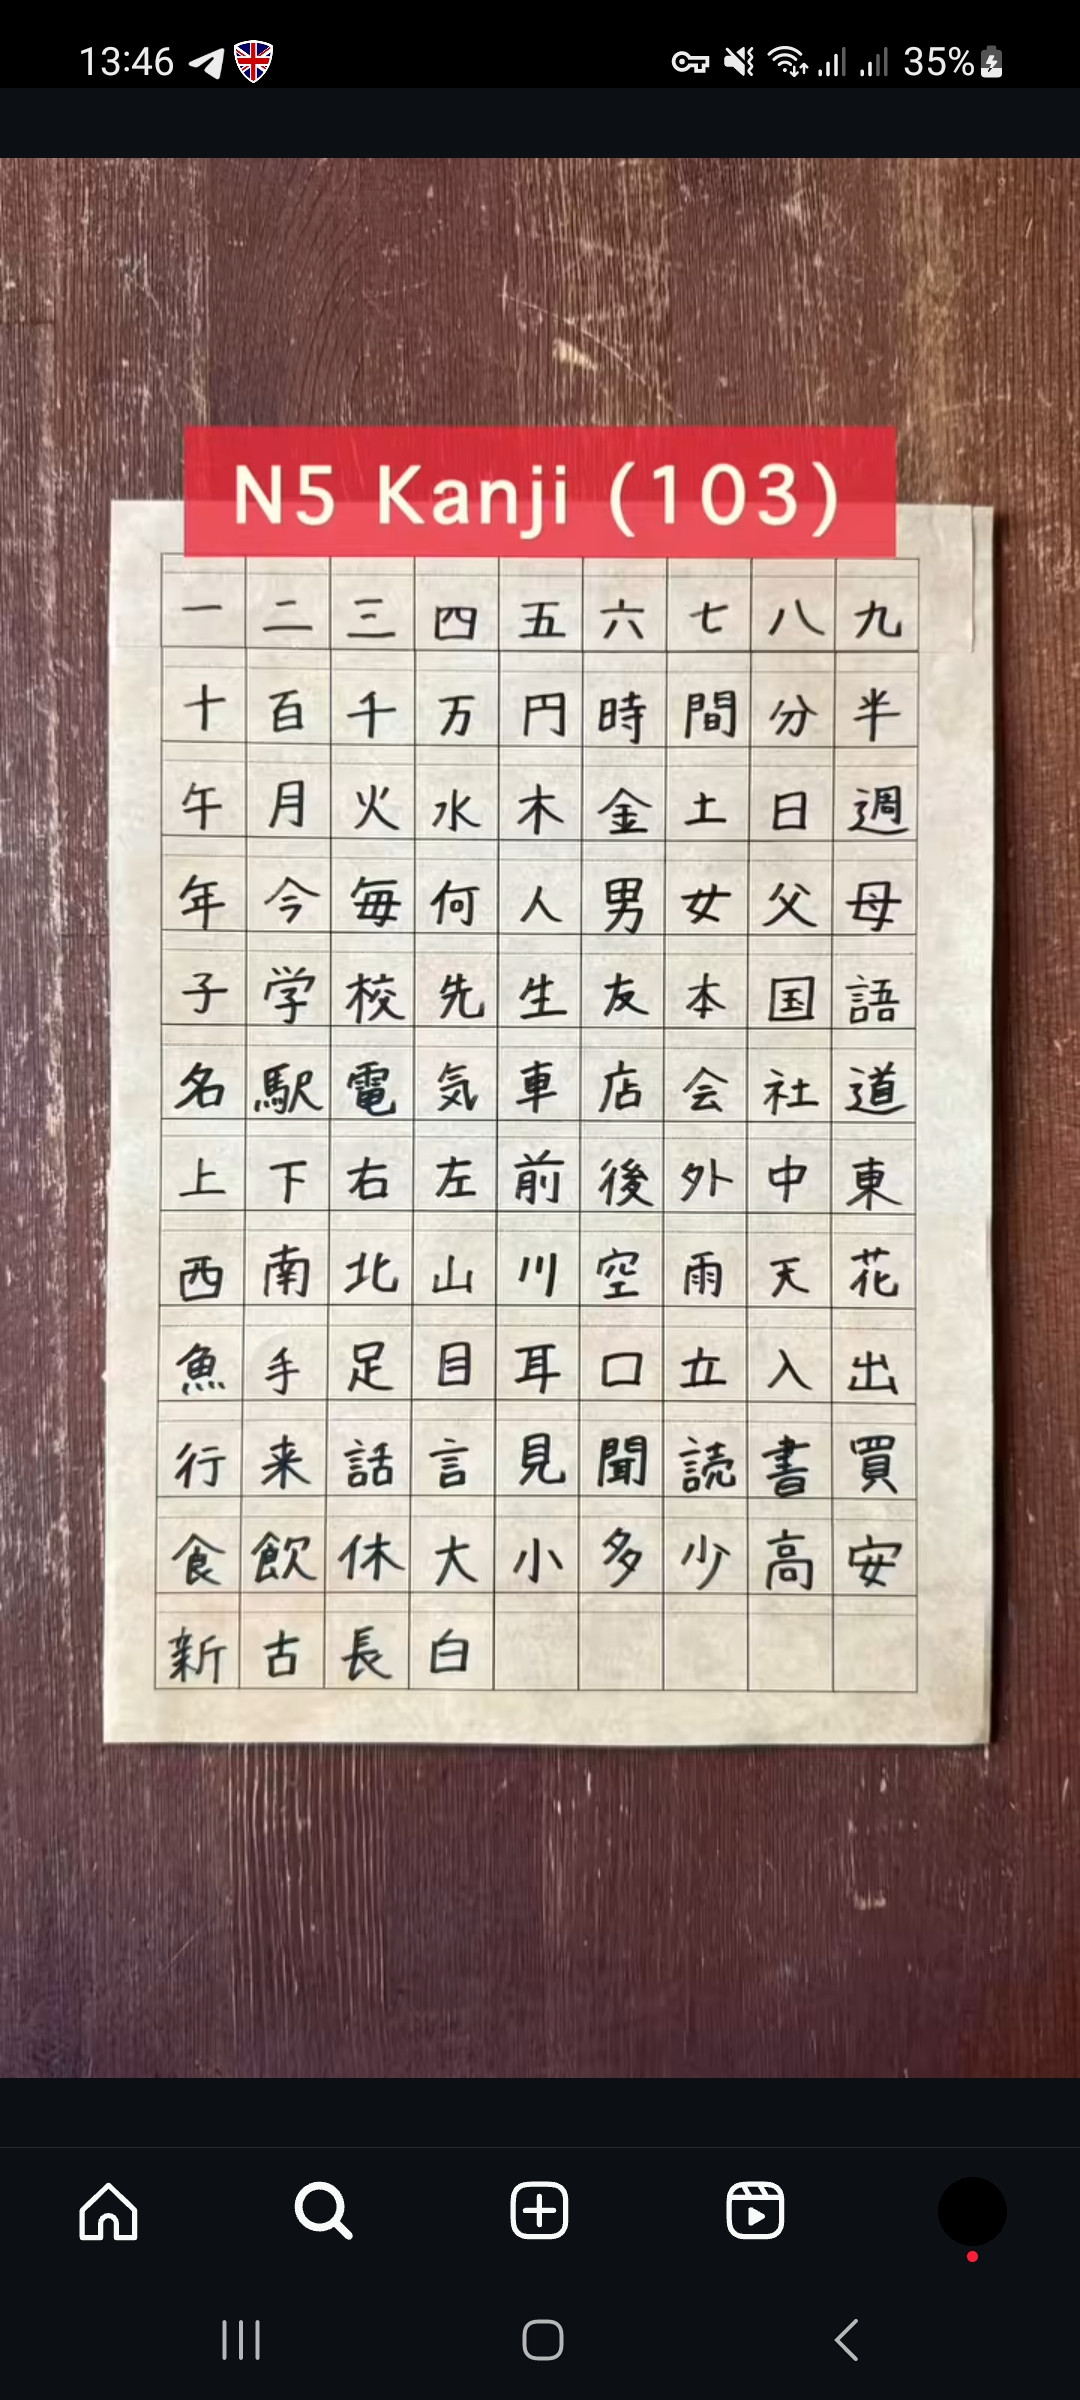 13:46
35%
N5 Kanji (103)
一 二 三 四 五 六 七 八 九
十 百 千 万 円 時 間 分 半
午 月 火 水 木 金 土 日 週
年 今 毎 何 人 男 女 父 母
子 学 校 先 生 友 本 国 語
名 駅 電 気 車 店 会 社 道
上 下 右 左 前 後 外 中 東
西 南 北 山 川 空 雨 天 花
魚 手 足 目 耳 口 立 入 出
行 来 話 言 見 聞 読 書 買
食 飲 休 大 小 多 少 高 安
新 古 長 白